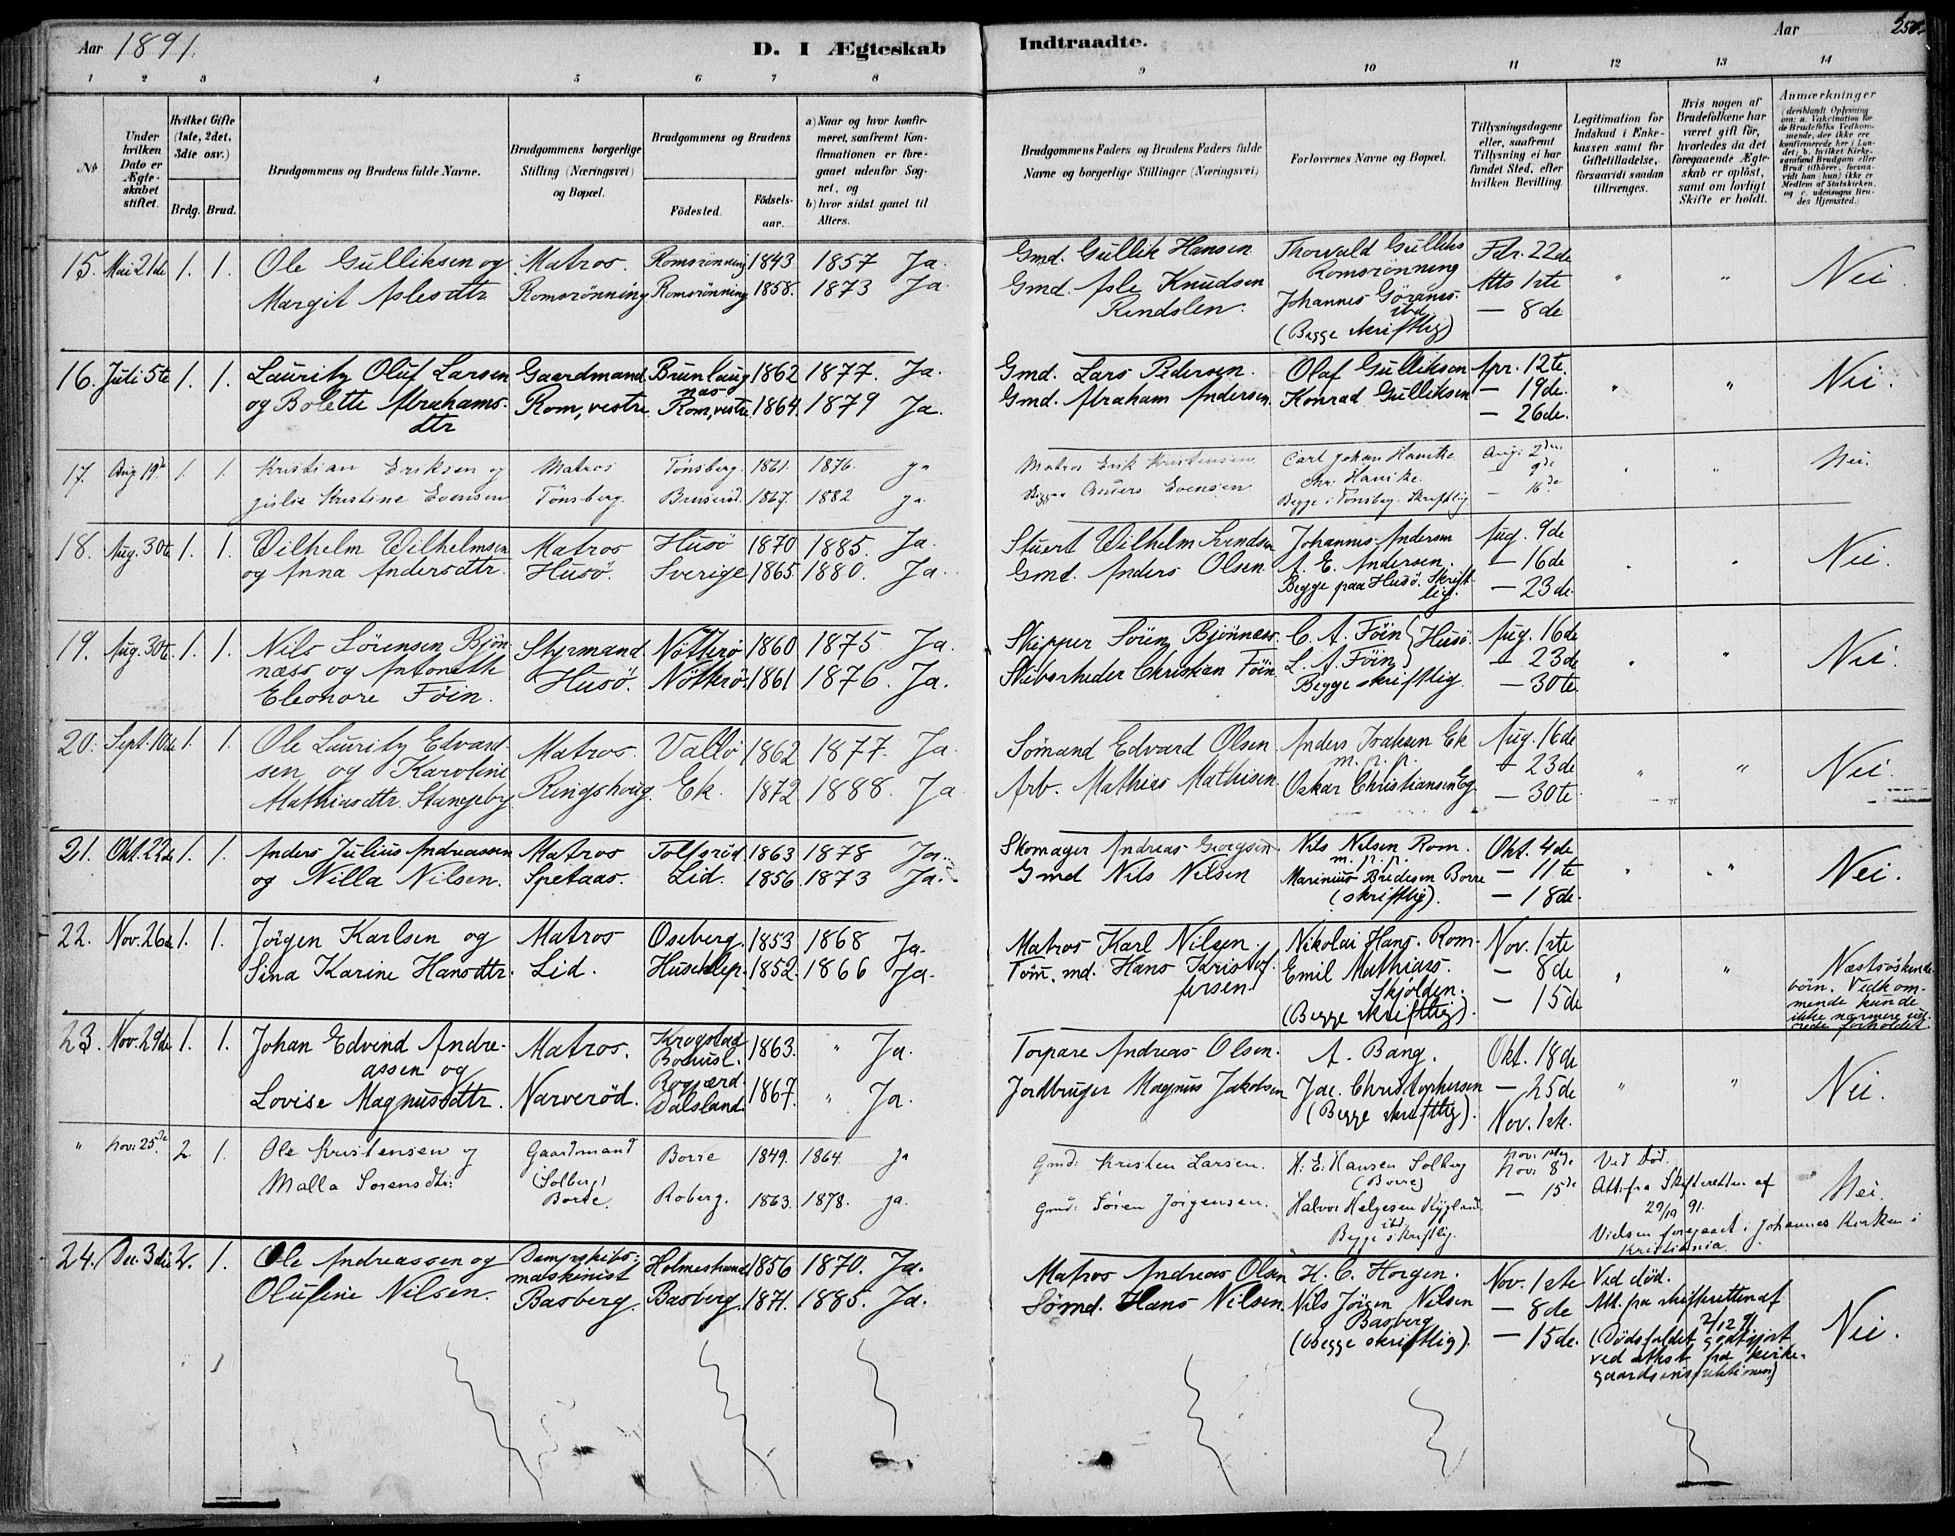 Aar 1891. D. I Ægteskab Indtraadte. Aar 250.
1 2 3 4 5 6 7 8 9 10 11 12 13 14
No
Under hvilken Dato er Ægteskabet stiftet.
Hvilket Gifte (1ste, 2det, 3die osv.)
Brdg. Brud.
Brudgommens og Brudens fulde Navne.
Brudgommens borgerlige Stilling (Næringsvei) og Bopæl.
Brudgommens og Brudens
Födested. Födselsaar.
a) Naar og hvor konfirmeret, saafremt Konfirmationen er foregaaet udenfor Sognet, og
b) hvor sidst gaaet til Alters.
Brudgommens Faders og Brudens Faders fulde Navne og borgerlige Stillinger (Næringsvei)
Forlovernes Navne og Bopæl.
Tillysningsdagene eller, saafremt Tillysning ei har fundet Sted, efter hvilken Bevilling.
Legitimation for Indskud i Enkekassen samt for Giftetilladelse, forsaavidt saadan tiltrænges.
Hvis nogen af Brudefolkene har været gift för, hvorledes da det foregaaende Ægteskab er oplöst, samt om lovligt Skifte er holdt.
Anmærkninger
15. Mai 21de 1. 1. Ole Gulliksen og Matros. Romsrönning 1843 1857 Ja. Gmd. Gullik Hansen Thorvald Gulliks Fdr. 22de " " Nei.
Margit Aslesdtr Romsrönning Romsrönning 1858. 1873 Ja Gmd. Asle Knudsen Romsrönning Mts 1ste
Rindslen. Johannes Göranes. ibd — 8de
(Begge skriftlig)
16. Juli 5te 1. 1. Lauritz Oluf Larsen Gaardmand Brunlaugnæs 1862 1877. Ja. Gmd. Lars Pedersen. Olaf Gulliksen Apr. 12te. " " Nei.
og Bolette Abrahams- Rom, vestre Rom, vestre 1864. 1879 Ja. Gmd. Abraham Andersen. Konrad Gulliksen — 19de.
dtr — 26de.
17. Aug 19de 1. 1. Kristian Eriksen og Matros Tönsberg. 1861. 1876. ja Matros Erik Kristensen Carl Johan Hanche Aug: 2den " " Nei.
Julie Kristine Evensen Tönsberg. 1867. 1882 ja. Anders Evensen Chr. Hanche. — 9de
Begge i Tönsberg. Skriftlig — 16de
18. Aug. 30te 1. 1. Wilhelm Wilhelmsen Matros Husö 1870 1885. Ja. Stuert Wilhelm Johannes Andersen Aug. 9de " " Nei.
og Anna Andersdtr. Husö. Sverige 1865. 1880. Ja. Gmd. Anders Olsen. A. E. Andersen. — 16de
Begge paa Husö. Skriftlig. — 23de.
19. Aug. 30te. 1. 1. Nils Sörensen Bjön- Styrmand Nötterö 1860 1875 Ja. Skipper Sören Bjönnæss C. A. Föin } Husö. Aug. 16de " " Nei.
næss og Antonette Husö. Nötterö. 1861 1876. Ja. Skibsrheder Christian Föin L. A. Föin — 23de
Eleonore Föin. Begge skriftlig. — 30te.
20. Sept. 10de 1. 1. Ole Lauritz Edvard- Matros. Vallö 1862 1877. Ja. Sömand Edvard Olsen Anders Isaksen Ek Aug. 16de " " Nei.
sen og Karoline Ringshoug. Ek. 1872. 1888. Ja Arb. Mathias Mathisen. m. p. p. — 23de
Mathiasdtr. Stangeby Oskar Christiansen Eg. — 30te
21. Okt. 22de 1. 1. Anders Julius Andreassen Matros Tolfsröd. 1863 1878 Ja. Skomager Andreas Georgsen. Nils Nilsen Rom. Okt. 4de " " Nei.
og Nilla Nilsen. Spetaas. Lid. 1856. 1873 Ja. Gmd Nils Nilsen m. p. p. — 11te
Marinius Bredesen Borre — 18de.
(skriftlig).
22. Nov. 26de 1. 1. Jörgen Karlsen og Matros Oseberg. 1853 1868 Ja. Matros Karl Nilsen. Nikolai Hans. Rom. Nov. 1ste " " Næstsöskende-
Sina Karine Hansdtr. Lid. 1852. 1866 Ja. Töm. md. Hans Kristof- Emil Mathias. — 8de börn. Vedkom-
fersen. Skjölden. — 15de mende kunde
(Begge skriftlig). ikke nærmere udrede forholdet.
23. Nov. 29de 1. 1. Johan Edvind Andre- Matros. Krogstad Bohusl. 1863. " Ja. Torpare Andreas Olsen. A. Bang. Okt. 18de " " Nei.
assen og
Lovise Magnusdtr. Narveröd. Dalsland 1867. " Ja. Jordbruger Magnus Jakobsen Jac. Christophersen — 25de
(Begge skriftlig). Nov. 1ste.
" Nov: 25de 2 1. Ole Kristensen og Gaardmand Borre 1849. 1864. ja Gmd: Kristen Larsen. H. E. Hansen Solberg Nov: 1ste Ved Död. Nei.
(Solberg) (Borre) Nov: 8de
Malla Sörensdtr: Borre. Roberg. 1863. 1878. ja. Gmd: Sören Jörgensen. Halvor Helgesen — 15de Att: fra Skifteretten af
ibd 29/10 91.
Begge skriftlig. Vielsen foregaaet i Johannes Kirken i
Kristiania.
24. Dec. 3die 2. 1. Ole Andreassen og Dampskibs- Holmestrand 1856 1870. Ja. Matros Andreas Olsen H. C. Horgen. Nov. 1ste Ved död. Nei.
maskinist
Olufine Nilsen. Basberg Basberg. 1871. 1885. Ja. Sömd. Hans Nilsen. Nils Jörgen Nilsen — 8de Att. fra skifteretten af
Basberg 2/12 91
(Begge skriftlig). — 15de. (Dödsfaldet godtgjort
ved attest fra kirke-
gaardsinspektionen)